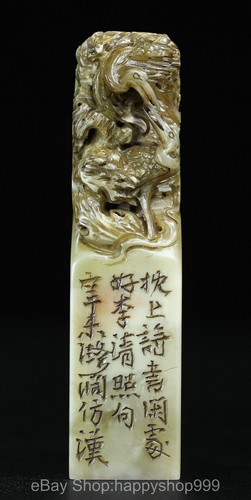 枕上詩書閑處
好李清照句
辛未
仿漢
eBay Shop:happyshop999